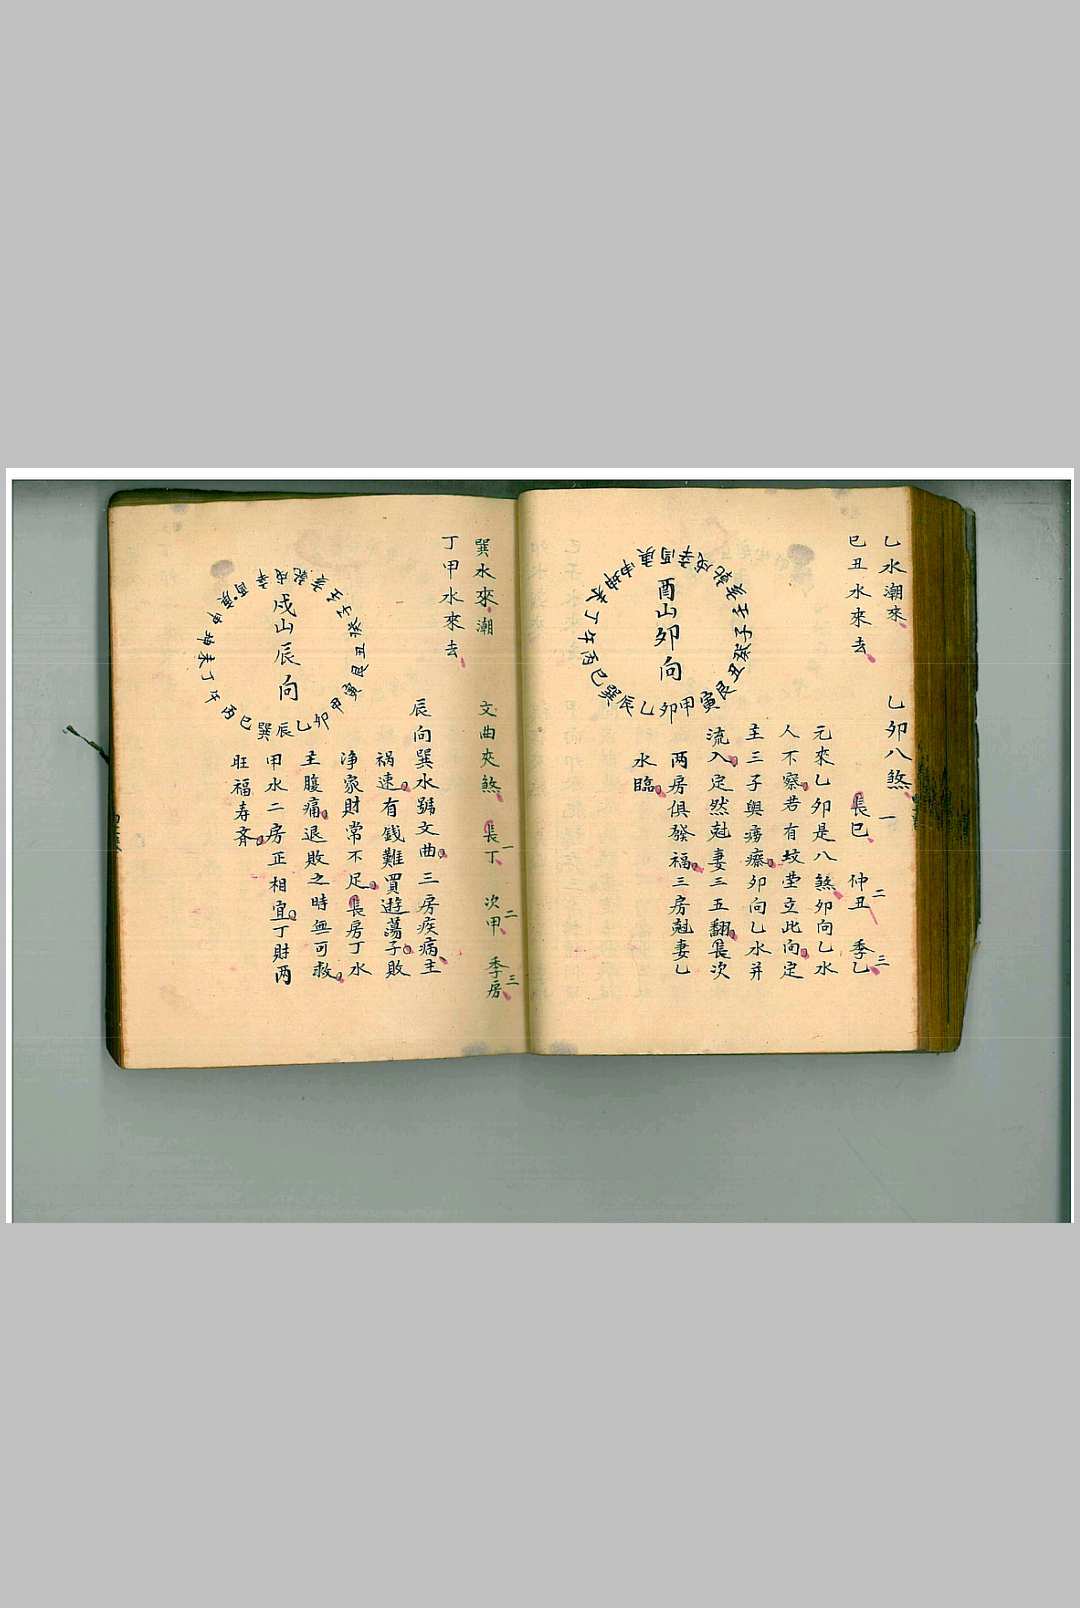 乙水潮來 乙卯八煞
巳丑水來去 長巳一 仲丑二 季乙三
酉山卯向
壬子癸丑艮寅甲卯乙辰巽巳丙午丁未坤申庚酉辛戌乾亥
元來乙卯是八煞卯向乙水
人不察若有坟茔立此向定
主三子與癆瘵卯向乙水并
流入定然尅妻三五翻長次
两房俱發福三房尅妻乙
水臨
巽水來潮 文曲夾煞 長丁一 次甲二 季房三
丁甲水來去
戌山辰向
壬子癸丑艮寅甲卯乙辰巽巳丙午丁未坤申庚酉辛戌乾亥
辰向巽水號文曲三房疾病主
祸速有錢難買遊蕩子敗
净家財常不足長房丁水
主腹痛退敗之時無可救
甲水二房正相宜丁財两
旺福寿齐